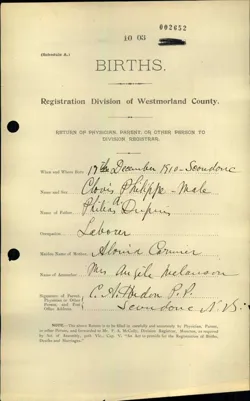 002652
10 03
(SCHEDULE A.)
BIRTHS.
Registration Division of Westmorland County.
RETURN OF PHYSICIAN, PARENT, OR OTHER PERSON TO
DIVISION REGISTRAR.
When and Where Born, 17th December 1910 - Scoudouc
Name and Sex, Clovis Philippe - Male
Name of Father, Philias A Dupuis
Occupation, Laborer
Maiden Name of Mother, Cormier
Name of Accoucheur, Mrs Angèle Melanson
Signature of Parent,
Physician or Other
Person, and Post
Office Address,
C. A. P.P.
Scoudouc N.B.
NOTE.—The above Return is to be filled by carefully and accurately by Physician, Parent,
or other Person, and forwarded to Mr. Division Registrar, Moncton, as required
by Act of Assembly, "An Act to provide for the Registration of Births,
Deaths and Marriages."